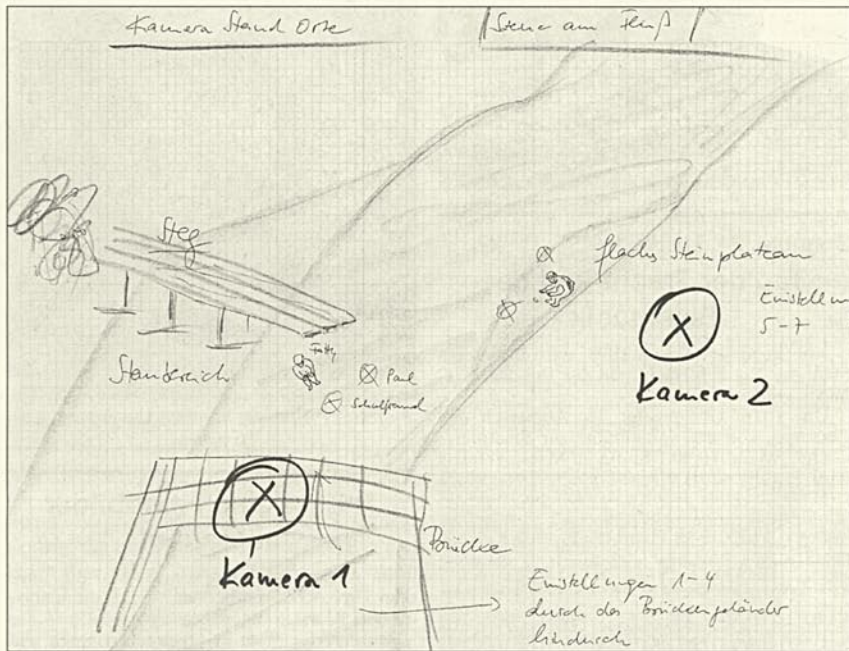 Kamera Stand Orte
Szene am Fluß
Steg
flaches Steinplateau
Einstellun
5-7
Kamera 2
Paul
Schulfreund
Kamera 1
Brücke
Einstellungen 1-4
durch das Brückengeländer
hindurch